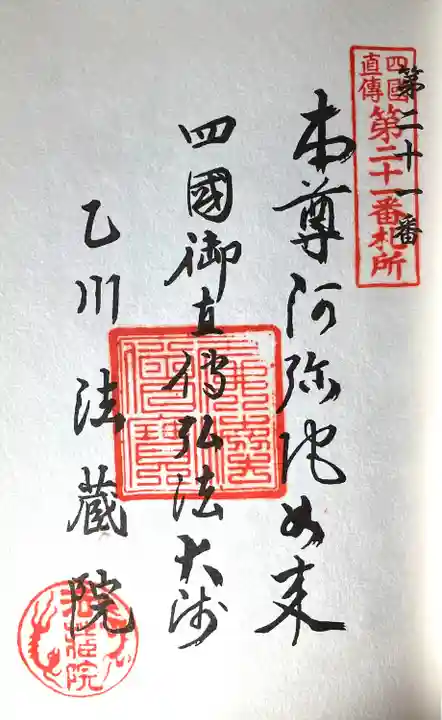 四國
直傳
第二十一番札所
第二十一番
本尊阿弥陀如来
四國御直傳弘法大师
乙川法蔵院
法蔵院